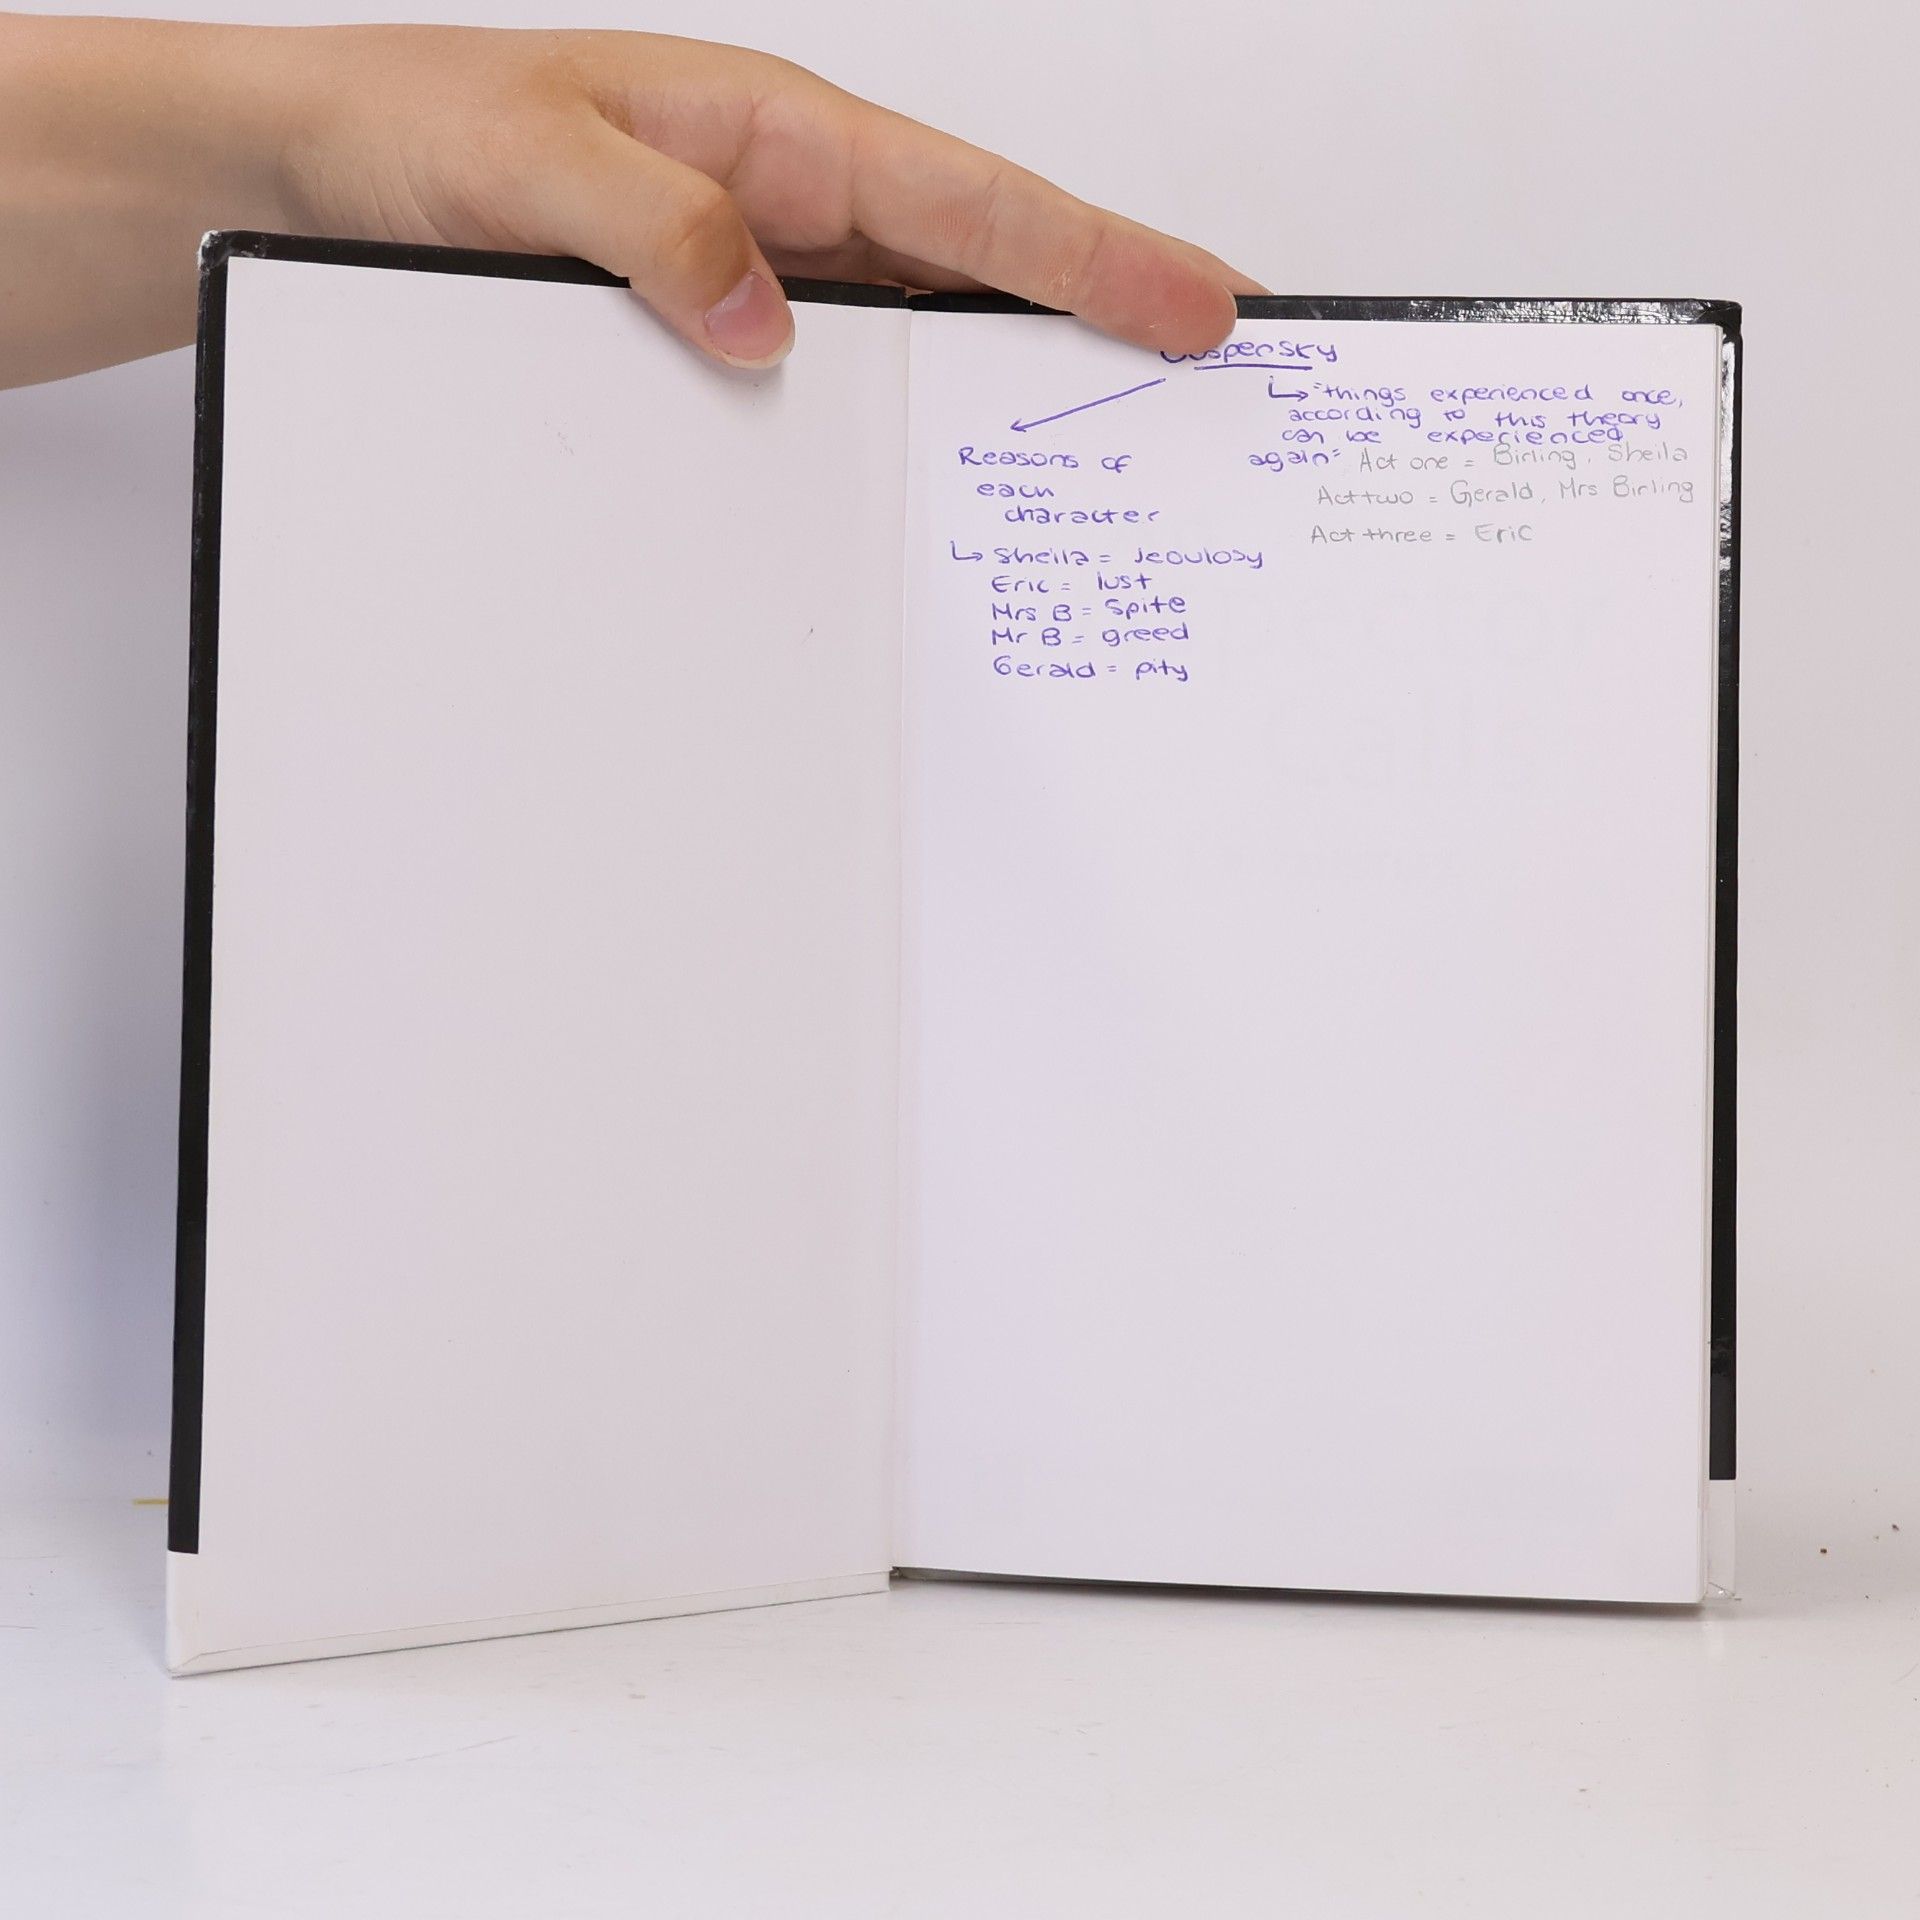 Ouspensky
↳ "things experienced once,
according to this theory
can be experienced
again"
Act one = Birling, Sheila
Act two = Gerald, Mrs Birling
Act three = Eric
Reasons of
each
character
↳ Sheila = jeoulosy
Eric = lust
Mrs B = Spite
Mr B = greed
Gerald = pity